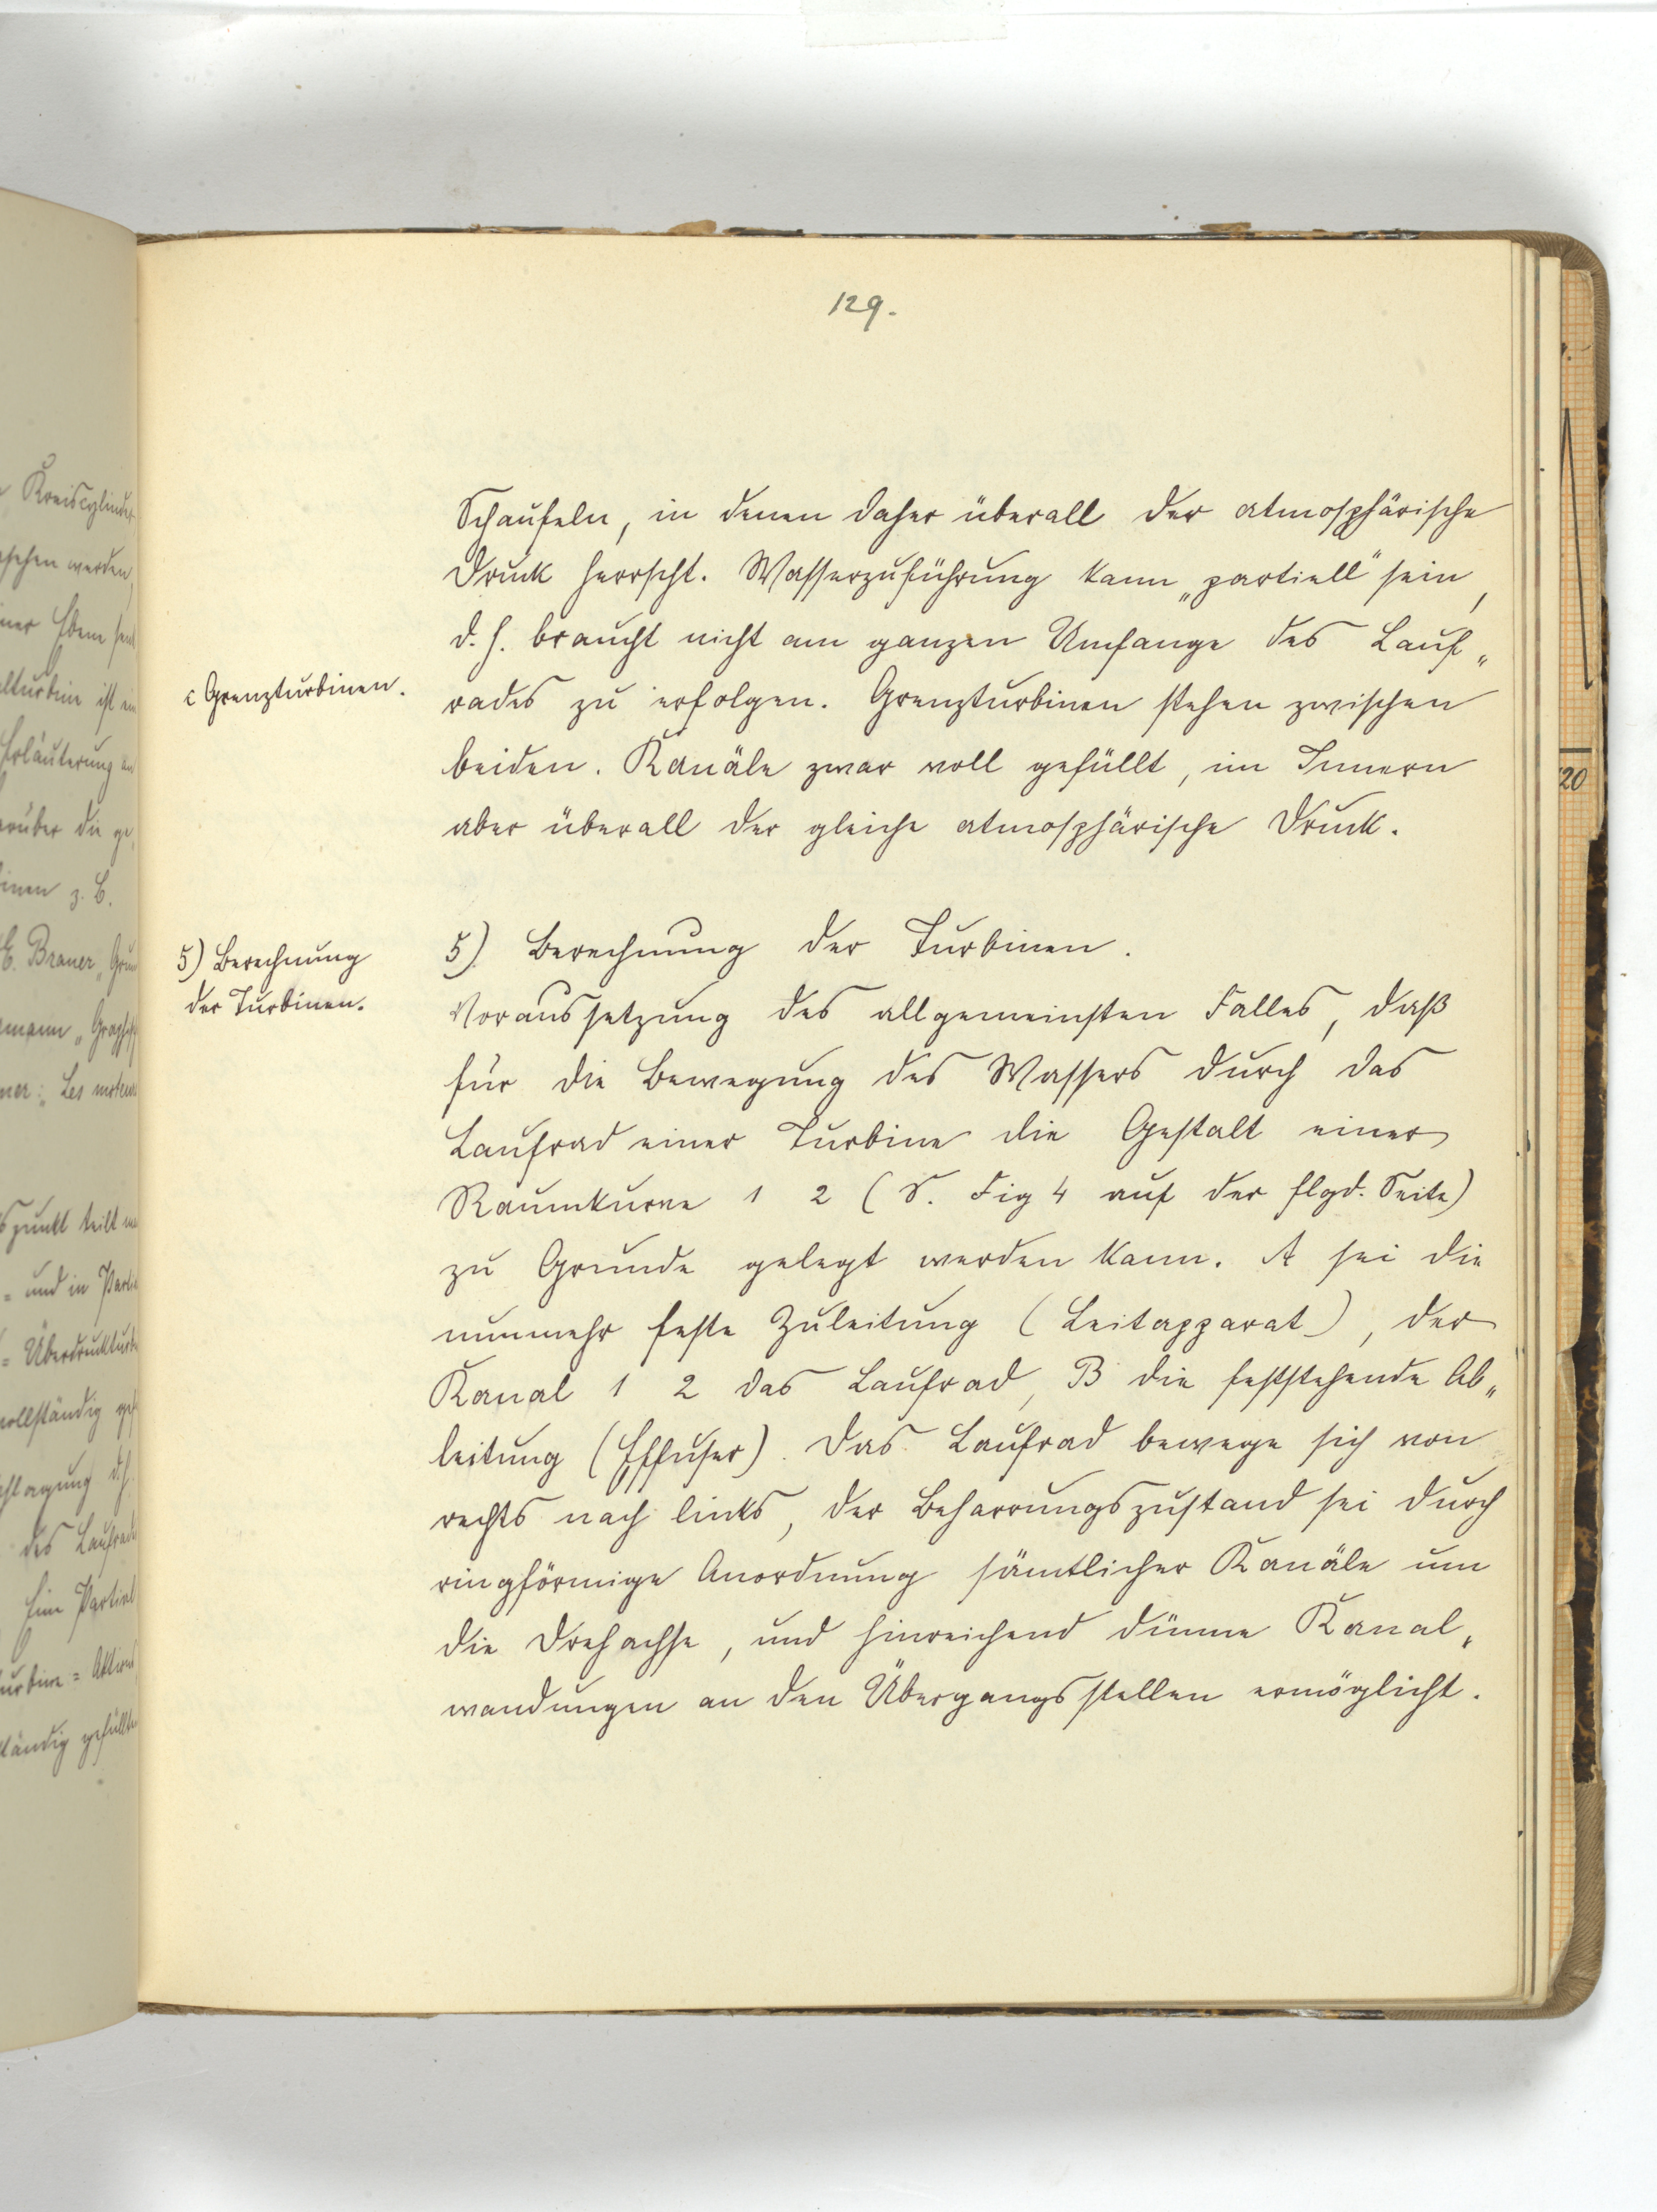 129.
Schaufeln, in denen daher überall der atmosphärische
Druck herrscht. Wasserzuführung kann „partiell“ sein,
d. h. braucht nicht am ganzen Umfange des Lauf„
c Grenzturbinen.
rades zu erfolgen. Grenzturbinen stehen zwischen
beiden. Kanäle zwar voll gefüllt, im Innern
aber überall der gleiche atmosphärische Druck.
5) Berechnung
der Turbinen.
5) Berechnung der Turbinen.
Voraussetzung des allgemeinsten Falles, daß
für die Bewegung des Wassers durch das
Laufrad einer Turbine die Gestalt einer
Raumkurve 1 2 (S. Fig 4 auf der flgd. Seite)
zu Grunde gelegt werden kann. A sei die
nunmehr feste Zuleitung (Leitapparat), der
Kanal 1 2 das Laufrad, B die feststehende Ab„
leitung (Effuser). Das Laufrad bewege sich von
rechts nach links, der Beharrungszustand sei durch
ringförmige Anordnung sämtlicher Kanäle um
die Drehachse, und hinreichend dünne Kanal„
wandungen an den Übergangsstellen ermöglicht.
Kreiscylinder
werden,
Ebene
ist
Erläuterung
die
z. B.
E. Brauer
Les
teilt
= und in
=
d. h.
des
Eine
20